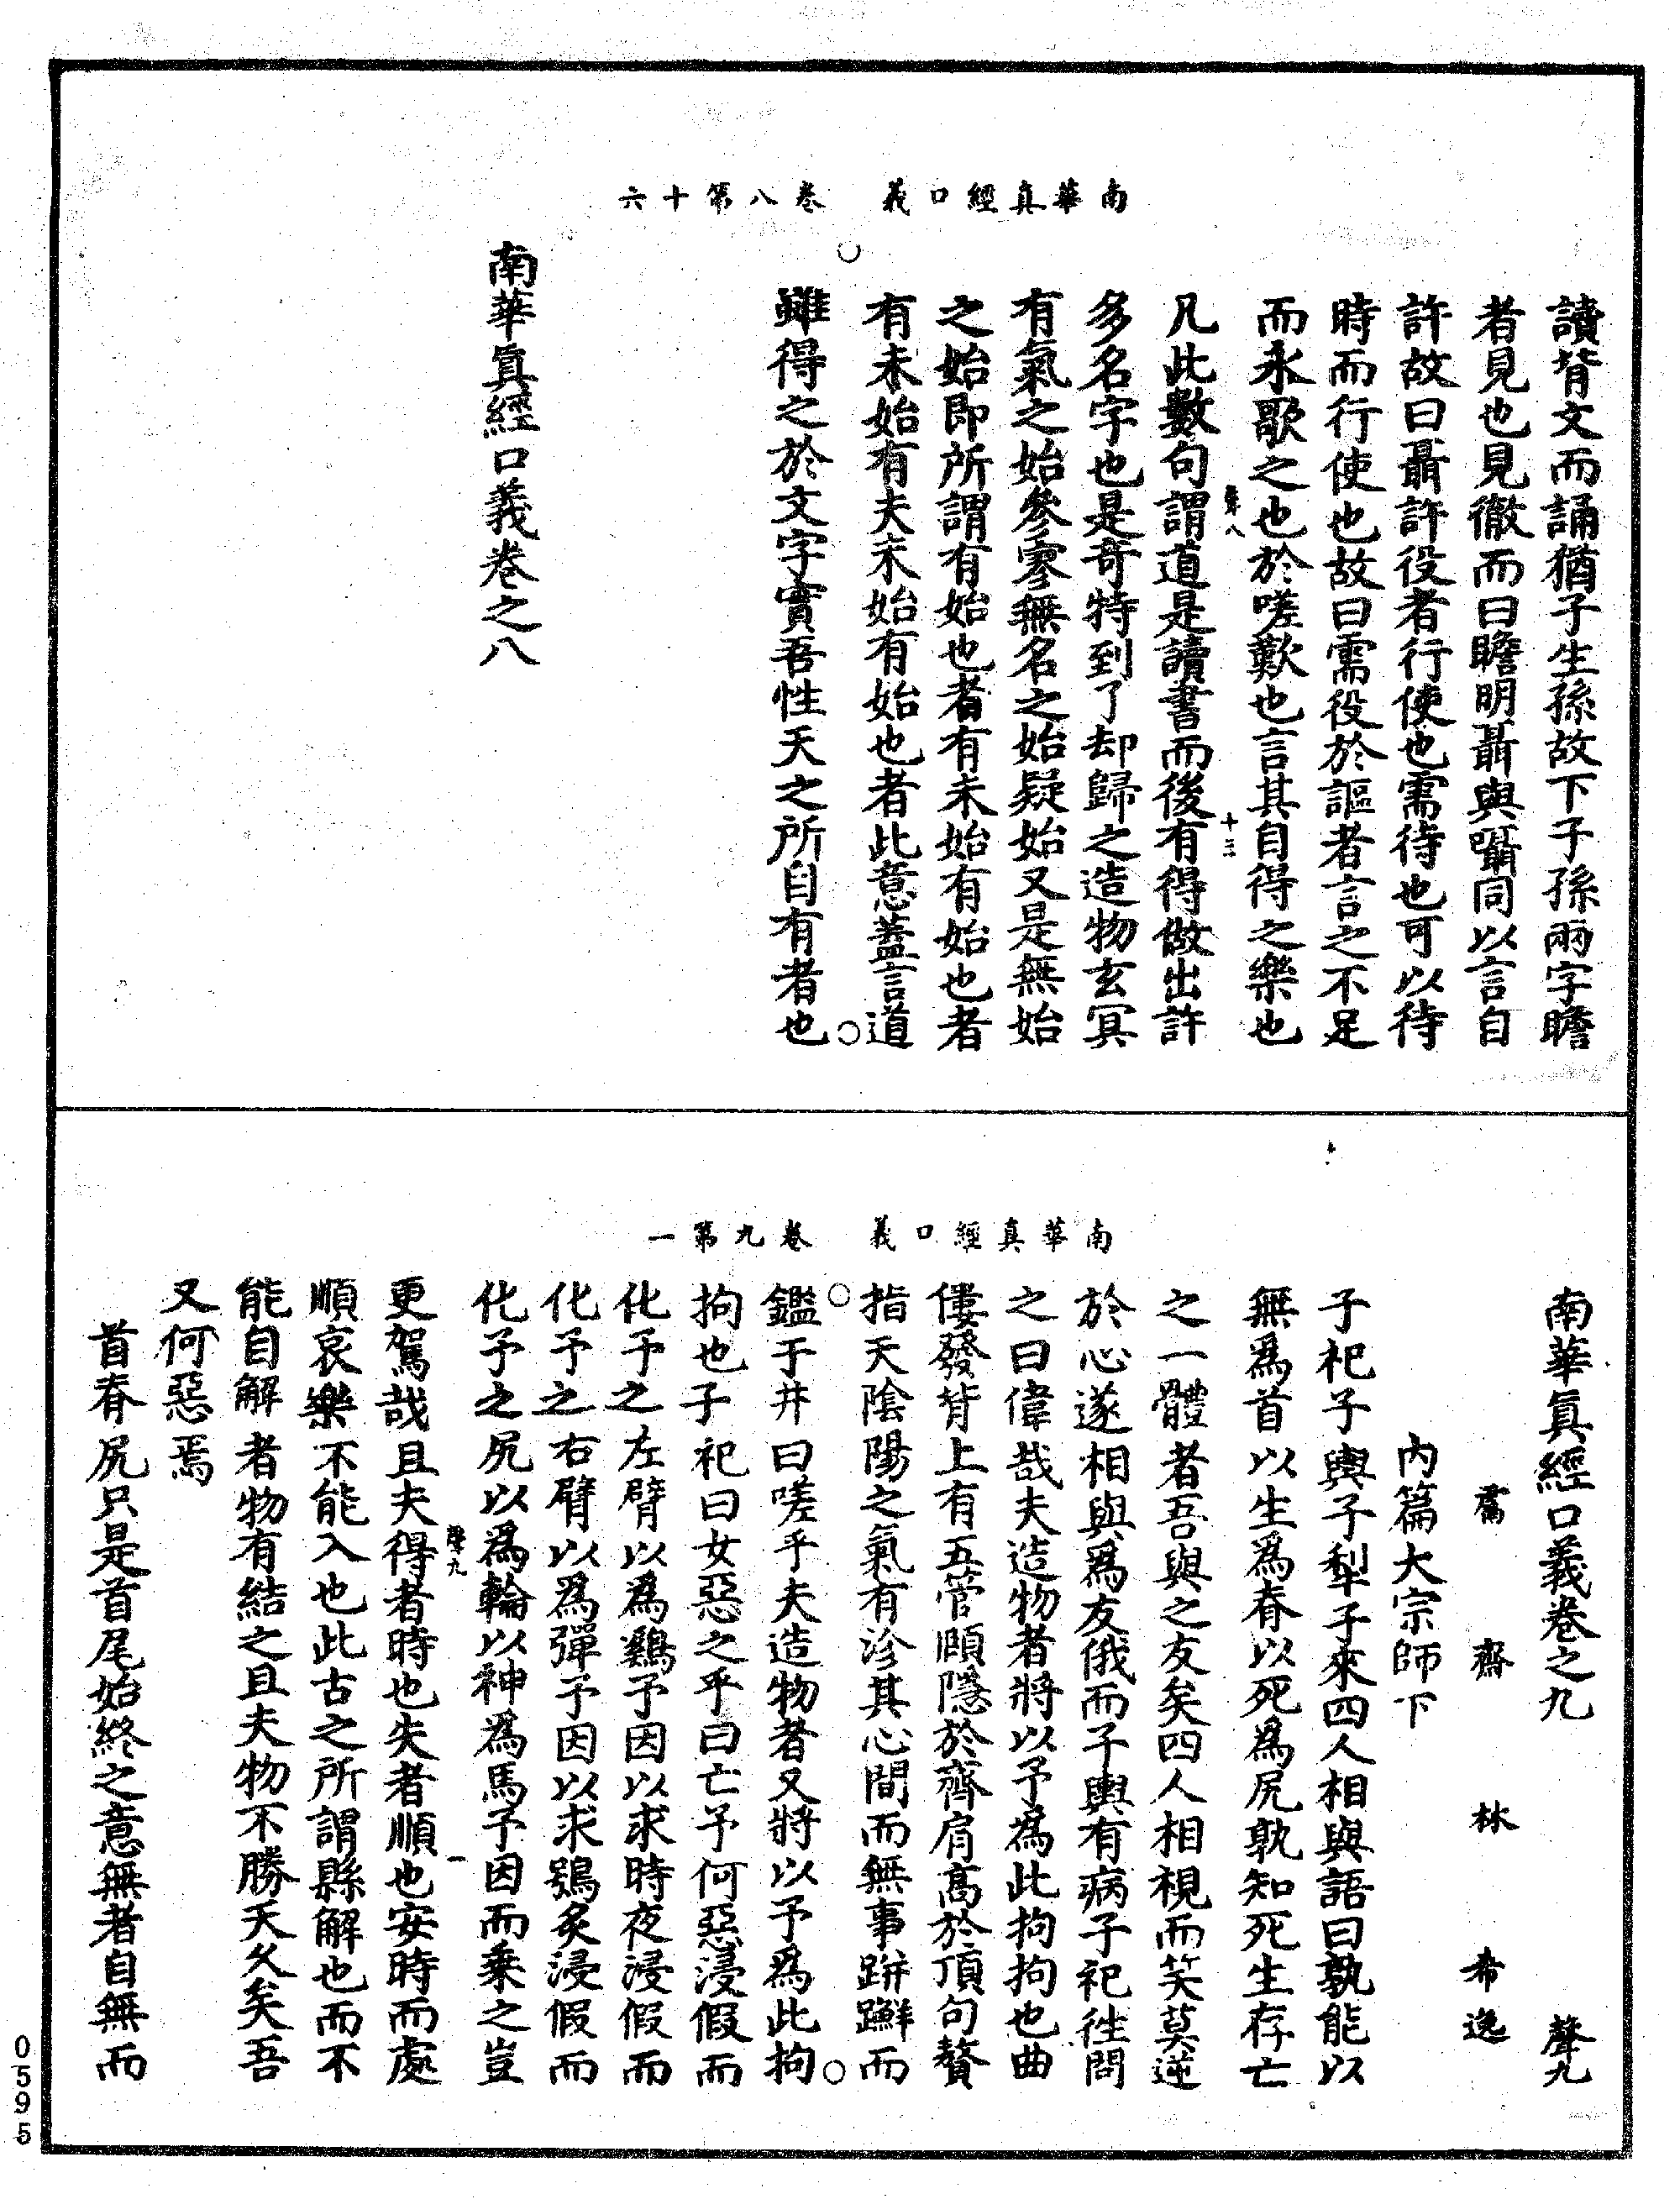 南華真經口義　卷八第十六
讀背文而誦猶子生孫故下子孫兩字瞻
者見也見徹而曰瞻明聶與囁同以言自
許故曰聶許役者行使也需待也可以待
時而行使也故曰需役於謳者言之不足
而永歌之也於嗟歎也言其自得之樂也
聲八　十三
凡此數句謂道是讀書而後有得做出許
多名字也是奇特到了却歸之造物玄冥
有氣之始參寥無名之始疑始又是無始
之始即所謂有始也者有未始有始也者
有未始有夫未始有始也者此意蓋言道
雖得之於文字實吾性天之所自有者也
南華真經口義卷之八
南華真經口義　卷九第一
南華真經口義卷之九　聲九
鬳齋林希逸
內篇大宗師下
子祀子輿子犁子來四人相與語曰孰能以
無為首以生為脊以死為尻孰知死生存亡
之一體者吾與之友矣四人相視而笑莫逆
於心遂相與為友俄而子輿有病子祀往問
之曰偉哉夫造物者將以予為此拘拘也曲
僂發背上有五管頤隱於齊肩高於頂句贅
指天陰陽之氣有沴其心間而無事跰𨇤而
鑑于井曰嗟乎夫造物者又將以予為此拘
拘也子祀曰女惡之乎曰亡予何惡浸假而
化予之左臂以為鷄予因以求時夜浸假而
化予之右臂以為彈予因以求鴞炙浸假而
化予之尻以為輪以神為馬予因而乘之豈
聲九　一
更駕哉且夫得者時也失者順也安時而處
順哀樂不能入也此古之所謂縣解也而不
能自解者物有結之且夫物不勝天久矣吾
又何惡焉
首脊尻只是首尾始終之意無者自無而
0595